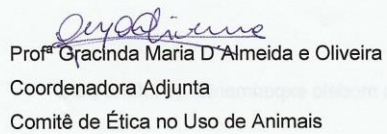 Profª Gracinda Maria D´Almeida e Oliveira
Coordenadora Adjunta
Comitê de Ética no Uso de Animais